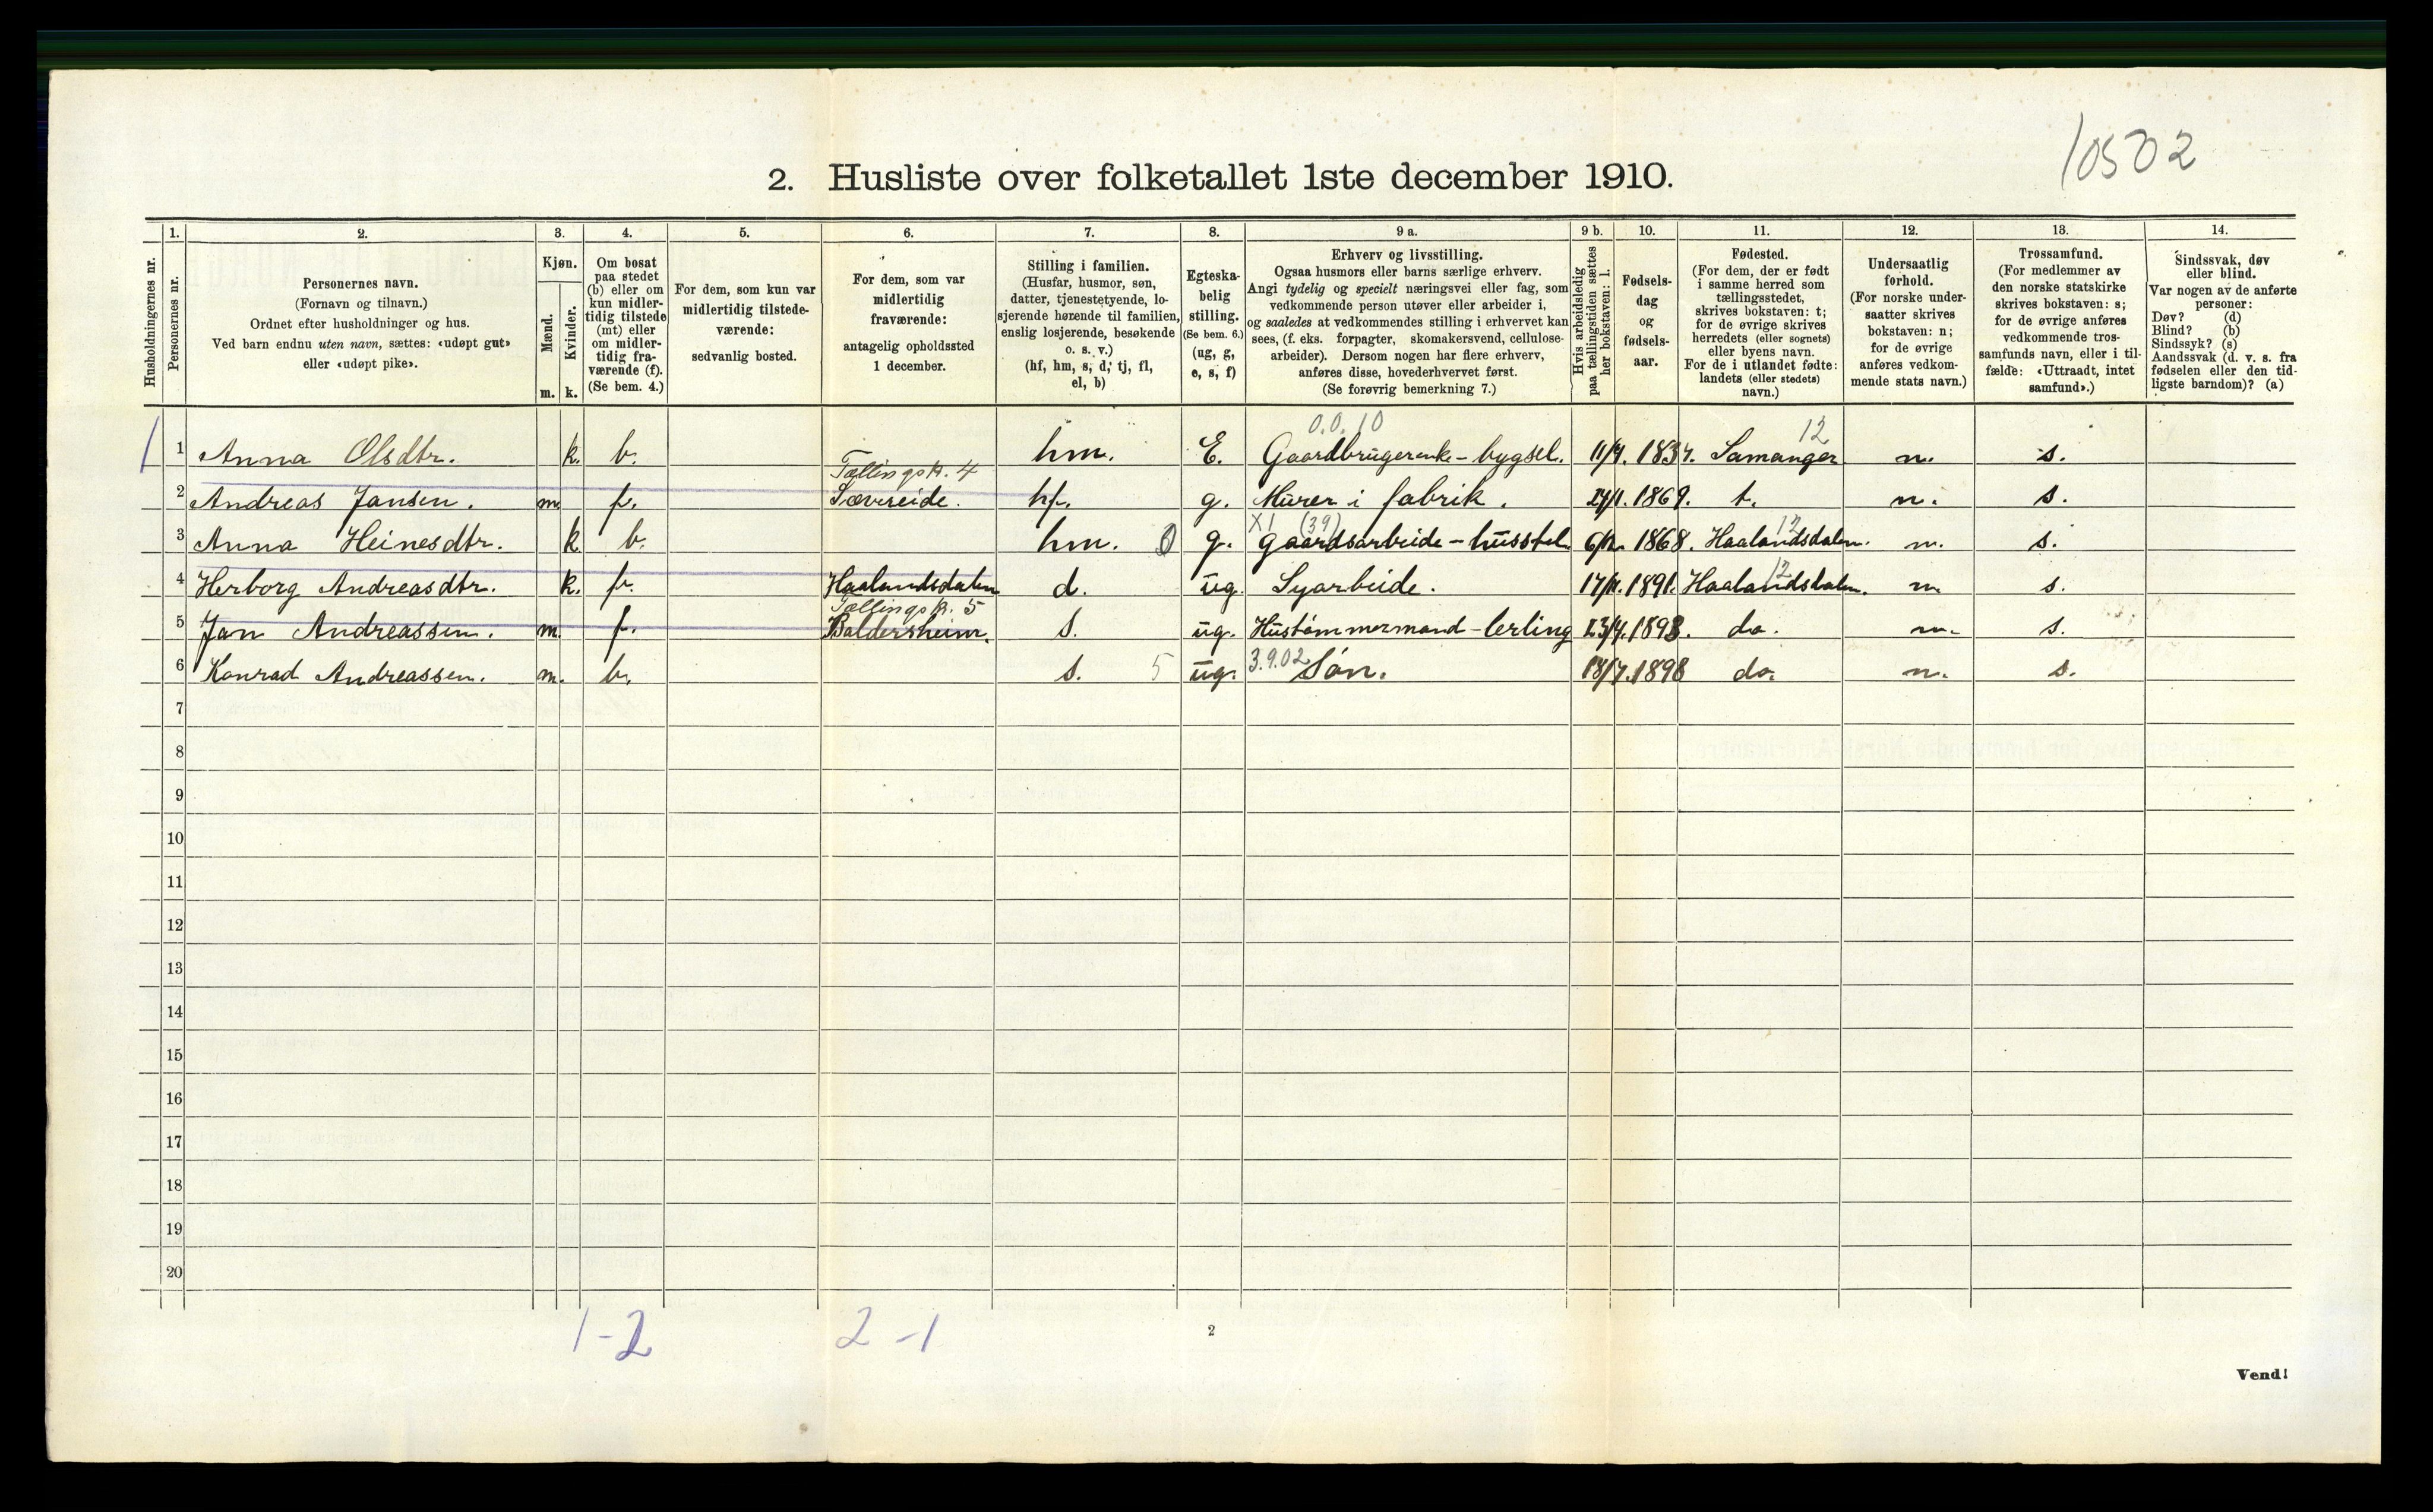 10502
2. Husliste over folketallet 1ste december 1910.
Husholdningernes nr.
1. Personernes nr.
2. Personernes navn. (Fornavn og tilnavn.) Ordnet efter husholdninger og hus. Ved barn endnu uten navn, sættes: «udøpt gut» eller «udøpt pike».
3. Kjøn. Mænd. m. Kvinder. k.
4. Om bosat paa stedet (b) eller om kun midlertidig tilstede (mt) eller om midlertidig fraværende (f). (Se bem. 4.)
5. For dem, som kun var midlertidig tilstedeværende: sedvanlig bosted.
6. For dem, som var midlertidig fraværende: antagelig opholdssted 1 december.
7. Stilling i familien. (Husfar, husmor, søn, datter, tjenestetyende, losjerende hørende til familien, enslig losjerende, besøkende o. s. v.) (hf, hm, s, d, tj, fl, el, b)
8. Egteskabelig stilling. (Se bem. 6.) (ug, g, e, s, f)
9 a. Erhverv og livsstilling. Ogsaa husmors eller barns særlige erhverv. Angi tydelig og specielt næringsvei eller fag, som vedkommende person utøver eller arbeider i, og saaledes at vedkommendes stilling i erhvervet kan sees, (f. eks. forpagter, skomakersvend, cellulosearbeider). Dersom nogen har flere erhverv, anføres disse, hovederhvervet først. (Se forøvrig bemerkning 7.)
9 b. Hvis arbeidsledig paa tællingstiden sættes her bokstaven: l.
10. Fødselsdag og fødselsaar.
11. Fødested. (For dem, der er født i samme herred som tællingsstedet, skrives bokstaven: t; for de øvrige skrives herredets (eller sognets) eller byens navn. For de i utlandet fødte: landets (eller stedets) navn.)
12. Undersaatlig forhold. (For norske undersaatter skrives bokstaven: n; for de øvrige anføres vedkommende stats navn.)
13. Trossamfund. (For medlemmer av den norske statskirke skrives bokstaven: s; for de øvrige anføres vedkommende trossamfunds navn, eller i tilfælde: «Uttraadt, intet samfund».)
14. Sindssvak, døv eller blind. Var nogen av de anførte personer: Døv? (d) Blind? (b) Sindssyk? (s) Aandssvak (d. v. s. fra fødselen eller den tidligste barndom)? (a)
0.0.10 12
1 1 Anna Olsdtr. k. b. hm. E. Gaardbrugerenke - bygsel. 11/4. 1834. Samanger n. s.
Tællingskr. 4
2 Andreas Jansen. m. f. Sævreide. hf. g. Murer i fabrik. 1869. t. n. s.
X1 (39) 12
3 Anna Heinesdtr. k b. hm. 0 g. gaardsarbeide - husstel 6/12. 1868. Haalandsdalen. n. s.
12
4 Herborg Andreasdtr. k. f. Haalandsdalen d. ug. Syarbeide. 17/11. 1891. Haalandsdalen. n. s.
Tællingskr. 5
5 Jan Andreassen. m. f. Baldersheim. s. ug. Hustømmermand - lerling 23/4. 1893. do. n. s.
6 Konrad Andreassen. m. b. s. 5 ug. 3.9.02 Søn. 18/7. 1898 do. n. s.
7
8
9
10
11
12
13
14
15
16
17
18
19
20
1-2 2-1
2
Vend!